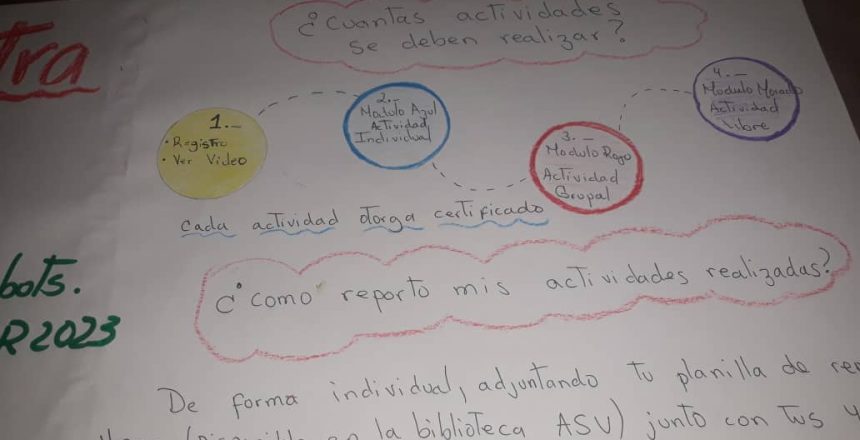 ¿Cuantas actividades
se deben realizar?
tra
1.-
• Registro
• Ver Video
2.
Modulo Azul
Actividad
Individual
3.-
Modulo Rojo
Actividad
Grupal
4.-
Modulo Morado
Actividad
libre
Cada actividad otorga certificado
¿Como reporto mis actividades realizadas?
bots.
R2023
De forma individual, adjuntando tu planilla de
en la biblioteca ASV) junto con tus